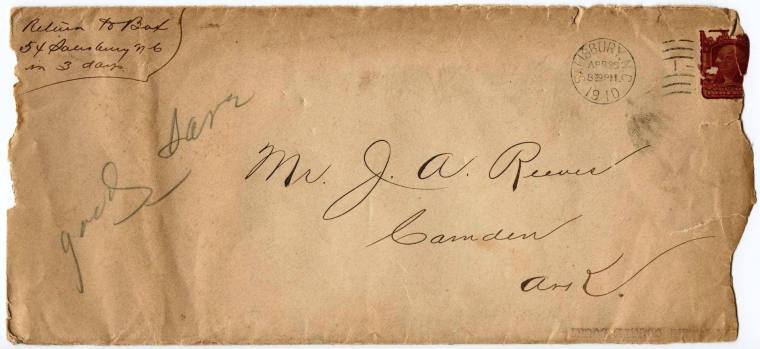 Return to Box
54 Salisbury N C
in 3 days
SALISBURY, N.C.
APR 25
8 30 PM
1910
good
Mr. J. A. Reeves
Camden
Ark.